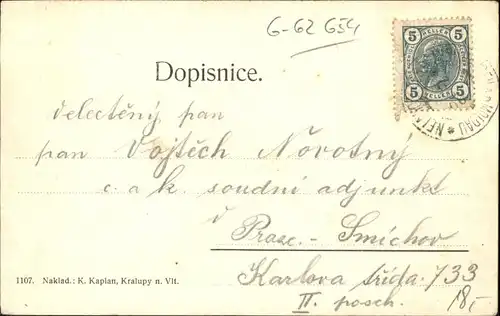 6-62 654
5 HELLER 5
5 HELLER 5
Dopisnice.
velectěný pan
pan Vojtěch Novotný
c. a k. soudní adjunkt
v
Praze. - Smíchov
Karlova třída. 733
II. posch.
18,-
1107. Naklad.: K. Kaplan, Kralupy n. Vlt.